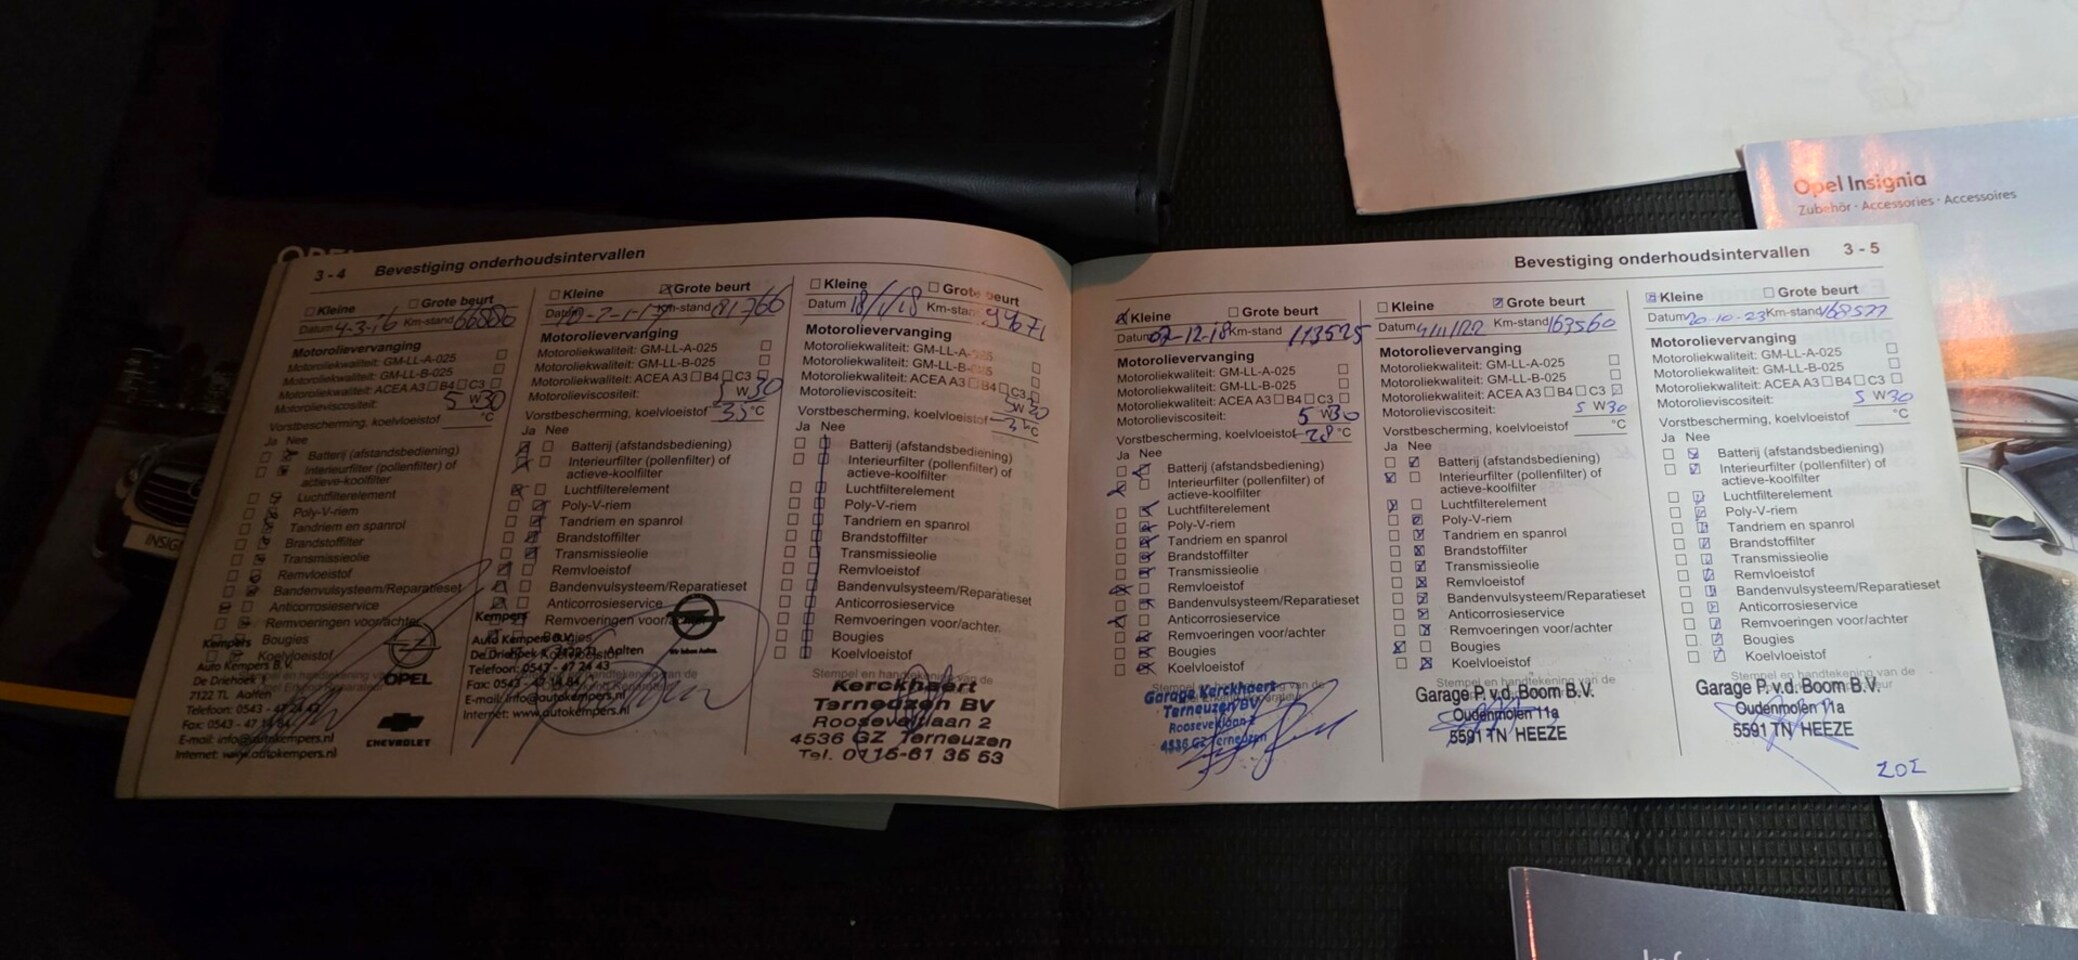 3 - 4 Bevestiging onderhoudsintervallen
Kleine Grote beurt
Datum 4-3-16 Km-stand
Motorolievervanging
Motoroliekwaliteit: GM-LL-A-025
Motoroliekwaliteit: GM-LL-B-025
Motoroliekwaliteit: ACEA A3 B4 C3
Motorolieviscositeit: 5 W30
Vorstbescherming, koelvloeistof °C
Ja Nee
Batterij (afstandsbediening)
Interieurfilter (pollenfilter) of
actieve-koolfilter
Luchtfilterelement
Poly-V-riem
Tandriem en spanrol
Brandstoffilter
Transmissieolie
Remvloeistof
Bandenvulsysteem/Reparatieset
Anticorrosieservice
Remvoeringen voor/achter
Bougies
Koelvloeistof
Kempers
Auto Kempers B.V.
De Driehoek 1
7122 TL Aalten
Telefoon: 0543 - 47 24 43
Fax: 0543 - 47
E-mail: info@autokempers.nl
Internet: www.autokempers.nl
OPEL
CHEVROLET
Kleine Grote beurt
Datum Km-stand 81766
Motorolievervanging
Motoroliekwaliteit: GM-LL-A-025
Motoroliekwaliteit: GM-LL-B-025
Motoroliekwaliteit: ACEA A3 B4 C3
Motorolieviscositeit: 5 W30
Vorstbescherming, koelvloeistof 35 °C
Ja Nee
Batterij (afstandsbediening)
Interieurfilter (pollenfilter) of
actieve-koolfilter
Luchtfilterelement
Poly-V-riem
Tandriem en spanrol
Brandstoffilter
Transmissieolie
Remvloeistof
Bandenvulsysteem/Reparatieset
Anticorrosieservice
Remvoeringen
Bougies
Kempers
Auto Kempers B.V.
De Driehoek Aalten
Telefoon: 0543 - 47 24 43
Fax: 0543 - 47
E-mail: info@autokempers.nl
Internet: www.autokempers.nl
Kleine Grote beurt
Datum 18/1/18 Km-stand 99671
Motorolievervanging
Motoroliekwaliteit: GM-LL-A-025
Motoroliekwaliteit: GM-LL-B-025
Motoroliekwaliteit: ACEA A3 B4 C3
Motorolieviscositeit: 5W30
Vorstbescherming, koelvloeistof °C
Ja Nee
Batterij (afstandsbediening)
Interieurfilter (pollenfilter) of
actieve-koolfilter
Luchtfilterelement
Poly-V-riem
Tandriem en spanrol
Brandstoffilter
Transmissieolie
Remvloeistof
Bandenvulsysteem/Reparatieset
Anticorrosieservice
Remvoeringen voor/achter.
Bougies
Koelvloeistof
Stempel en handtekening van de
Kerckhaert
Terneuzen BV
Rooseveltlaan 2
4536 GZ Terneuzen
Tel. 0115-61 35 53
Bevestiging onderhoudsintervallen 3 - 5
Kleine Grote beurt
Datum 07-12-18 Km-stand 113525
Motorolievervanging
Motoroliekwaliteit: GM-LL-A-025
Motoroliekwaliteit: GM-LL-B-025
Motoroliekwaliteit: ACEA A3 B4 C3
Motorolieviscositeit: 5 W30
Vorstbescherming, koelvloeistof -28 °C
Ja Nee
Batterij (afstandsbediening)
Interieurfilter (pollenfilter) of
actieve-koolfilter
Luchtfilterelement
Poly-V-riem
Tandriem en spanrol
Brandstoffilter
Transmissieolie
Remvloeistof
Bandenvulsysteem/Reparatieset
Anticorrosieservice
Remvoeringen voor/achter
Bougies
Koelvloeistof
Stempel en handtekening van de
Garage Kerckhaert
Terneuzen BV
Rooseveltlaan 2
4536 GZ Terneuzen
Kleine Grote beurt
Datum Km-stand 163560
Motorolievervanging
Motoroliekwaliteit: GM-LL-A-025
Motoroliekwaliteit: GM-LL-B-025
Motoroliekwaliteit: ACEA A3 B4 C3
Motorolieviscositeit: 5 W30
Vorstbescherming, koelvloeistof °C
Ja Nee
Batterij (afstandsbediening)
Interieurfilter (pollenfilter) of
actieve-koolfilter
Luchtfilterelement
Poly-V-riem
Tandriem en spanrol
Brandstoffilter
Transmissieolie
Remvloeistof
Bandenvulsysteem/Reparatieset
Anticorrosieservice
Remvoeringen voor/achter
Bougies
Koelvloeistof
Stempel en handtekening van de
Garage P. v.d. Boom B.V.
Oudenmolen 11a
5591 TN HEEZE
Kleine Grote beurt
Datum 20-10-23 Km-stand 168577
Motorolievervanging
Motoroliekwaliteit: GM-LL-A-025
Motoroliekwaliteit: GM-LL-B-025
Motoroliekwaliteit: ACEA A3 B4 C3
Motorolieviscositeit: 5 W30
Vorstbescherming, koelvloeistof °C
Ja Nee
Batterij (afstandsbediening)
Interieurfilter (pollenfilter) of
actieve-koolfilter
Luchtfilterelement
Poly-V-riem
Tandriem en spanrol
Brandstoffilter
Transmissieolie
Remvloeistof
Bandenvulsysteem/Reparatieset
Anticorrosieservice
Remvoeringen voor/achter
Bougies
Koelvloeistof
Stempel en handtekening van de
Garage P. v.d. Boom B.V.
Oudenmolen 11a
5591 TN HEEZE
Opel Insignia
Zubehör · Accessories · Accessoires